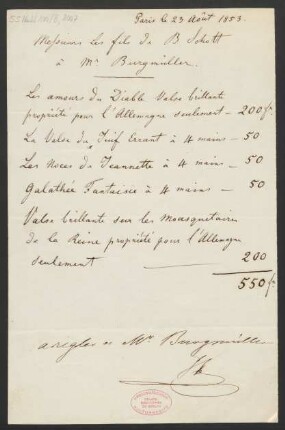 Paris le 23 Août 1853.
Messieurs les fils de B Schott
à Mr Burgmüller.
Les amours du Diable Valse brillante
propriété pour l'Allemagne seulement — 200 fr
La Valse du Juif Errant à 4 mains — 50
Les Noces de Jeannette à 4 mains — 50
Galathée Fantaisie à 4 mains — 50
Valse brillante sur les Mousquetaires
de la Reine propriété pour l'Allemagne
seulement — 200
550 fr
a regler a Mr Burgmüller